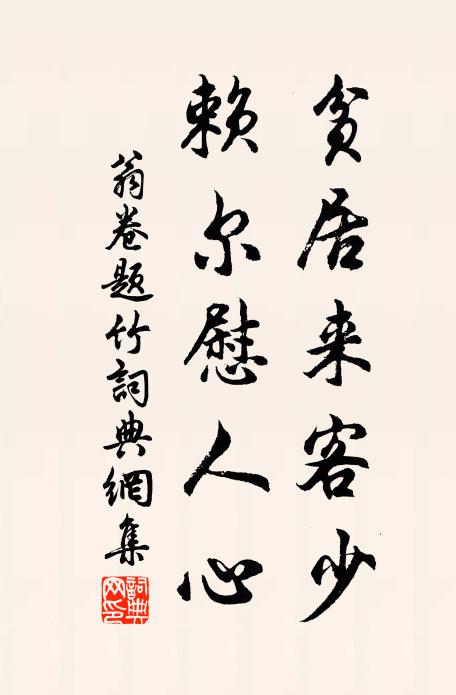 贫居来客少
赖尔慰人心
翁卷题竹詞典網集
詞典网印